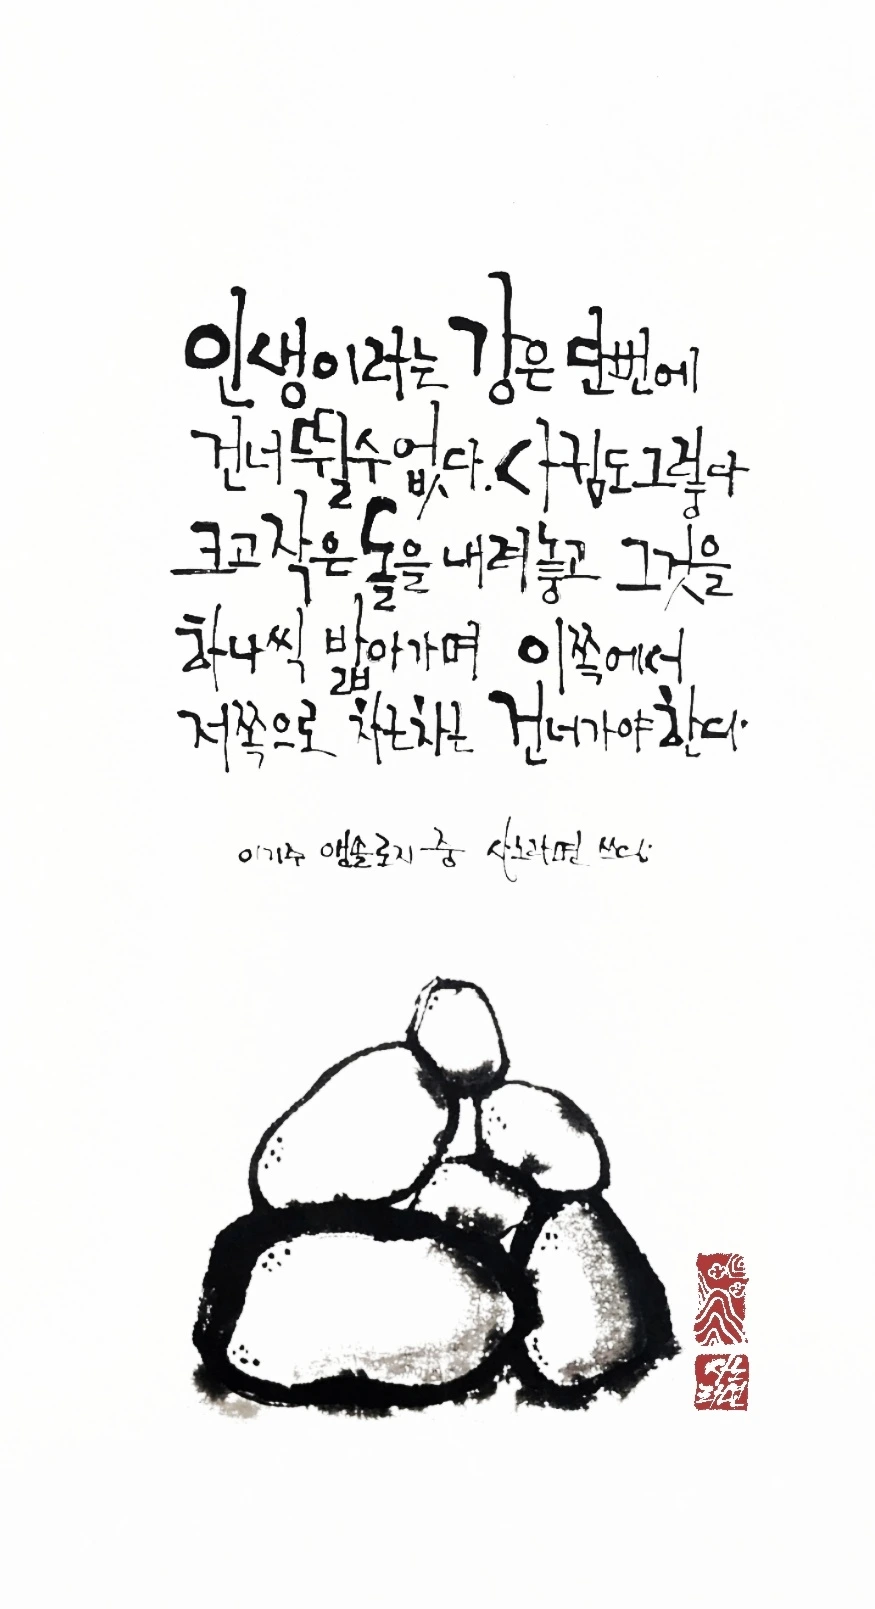 인생이라는 강은 단번에
건너뛸 수 없다. 사귐도 그렇다
크고 작은 돌을 내려놓고 그것을
하나씩 밟아가며 이쪽에서
저쪽으로 차근차근 건너가야 한다.
이기주 앤솔로지 중 사노라면 쓰다.
사노
라면